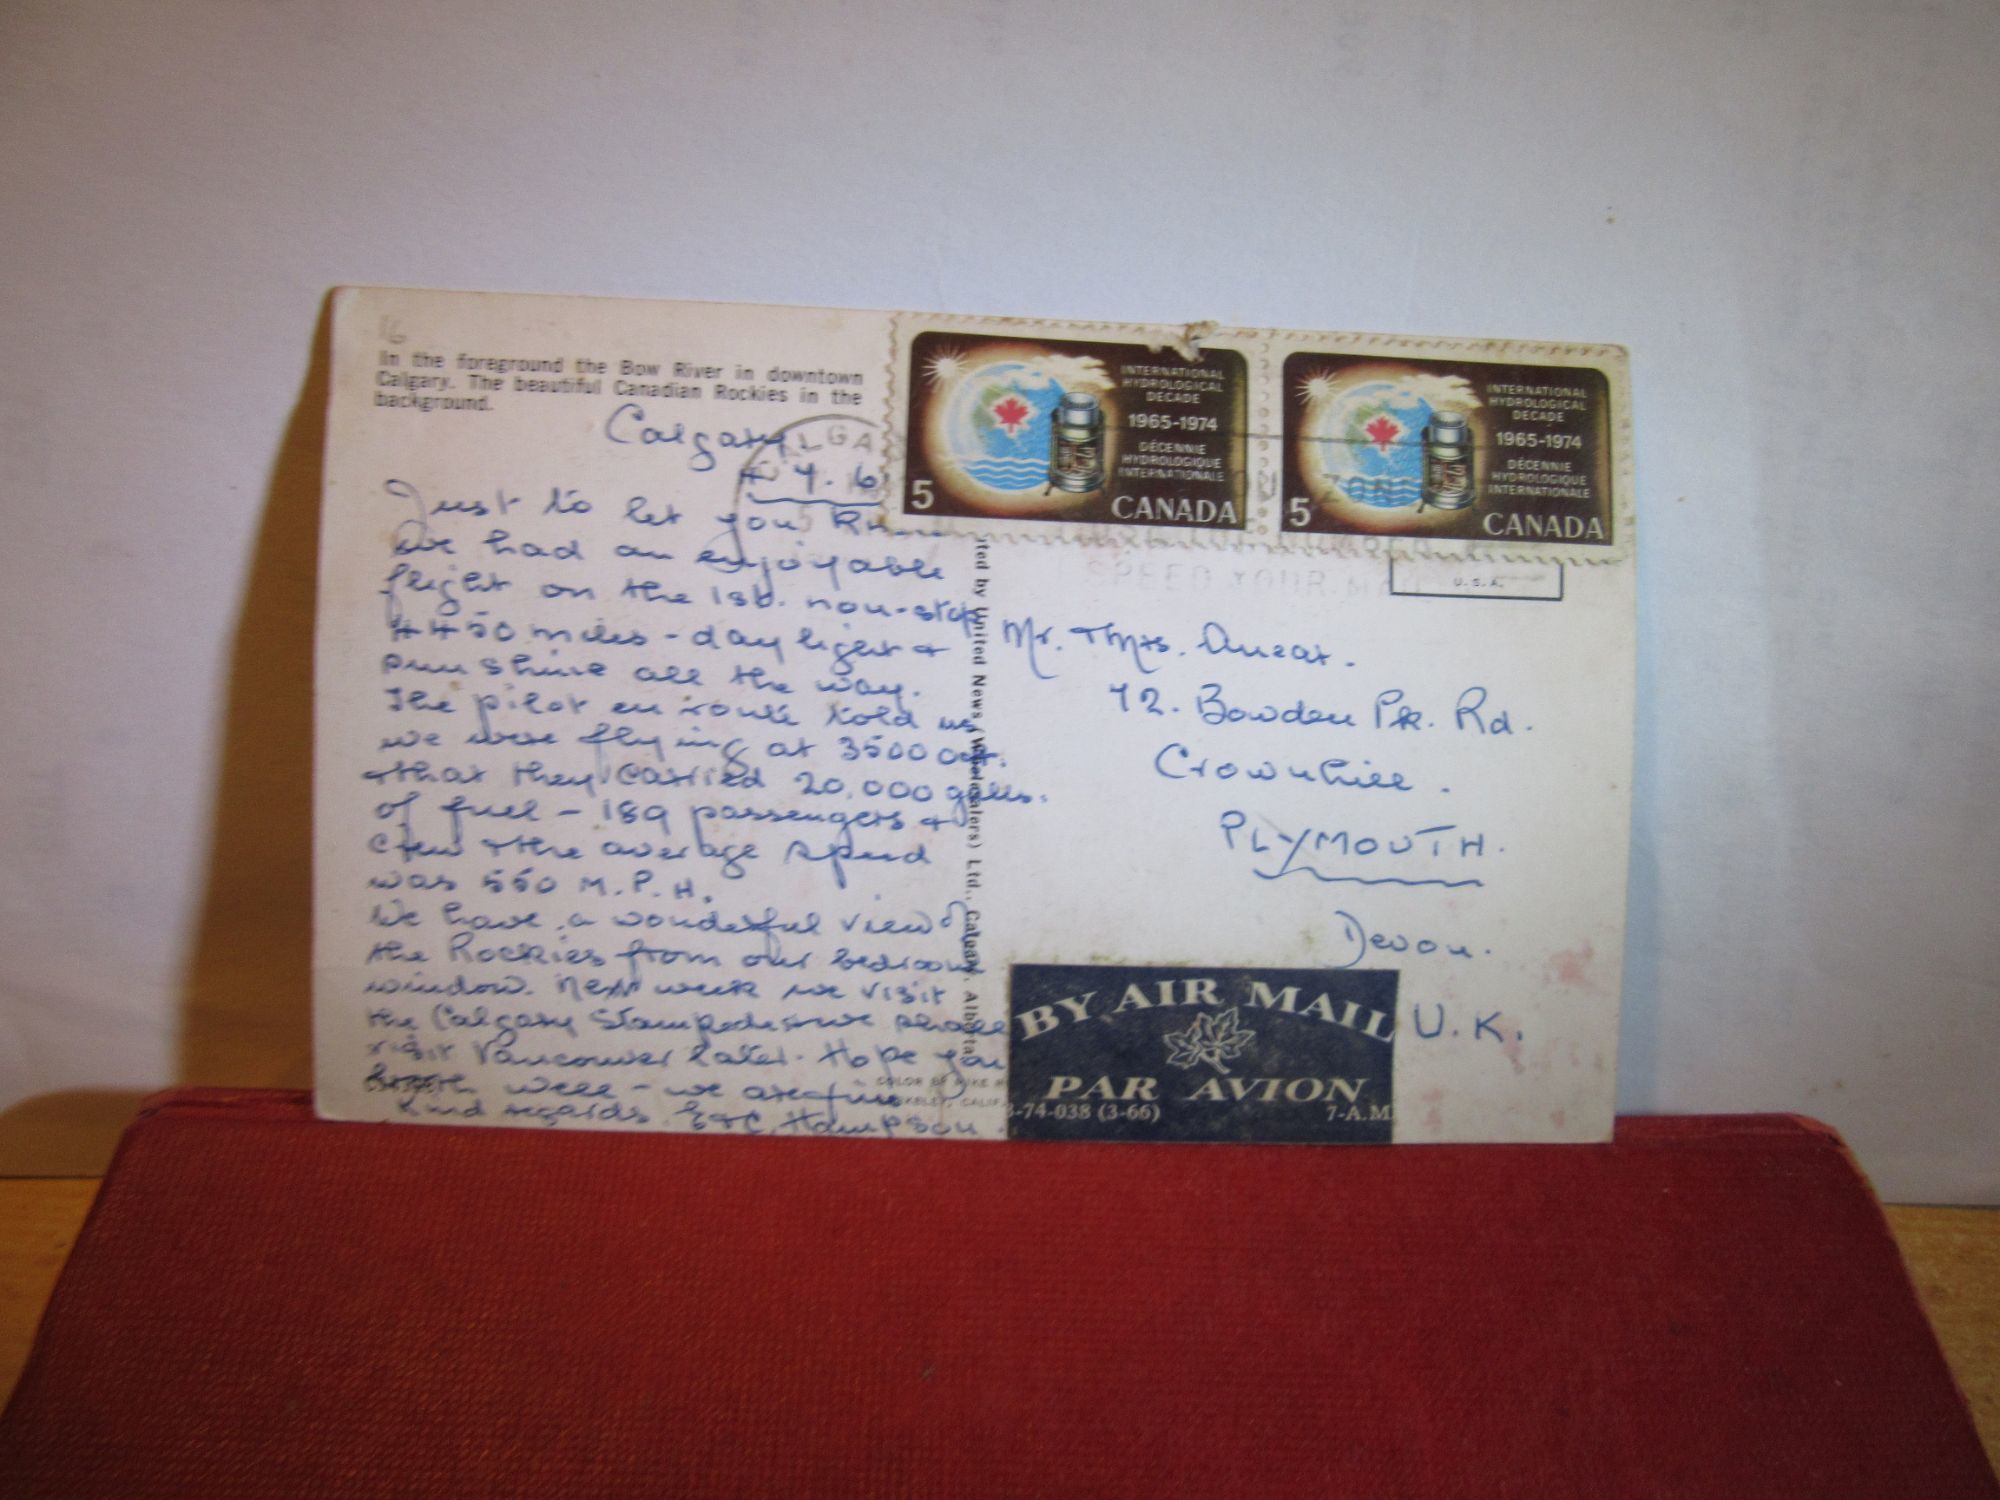 16
In the foreground the Bow River in downtown
Calgary. The beautiful Canadian Rockies in the
background.
Calgary
4.7.6
Just to let you
we had an enjoyable
flight on the 1st. non-stop
4450 miles - daylight +
sunshine all the way.
The pilot en route told us
we were flying at 35000ft.
+ that they carried 20,000 galls.
of fuel - 189 passengers +
crew + the average speed
was 550 M.P.H.
We have a wonderful view of
the Rockies from our bedroom
window. Next week we visit
the Calgary Stampede + we shall
visit Vancouver later. Hope you
both well - we are fine
Kind regards. E + C. Hampson.
INTERNATIONAL
HYDROLOGICAL
DECADE
1965-1974
DÉCENNIE
HYDROLOGIQUE
INTERNATIONALE
5
CANADA
INTERNATIONAL
HYDROLOGICAL
DECADE
1965-1974
DÉCENNIE
HYDROLOGIQUE
INTERNATIONALE
5
CANADA
SPEED YOUR MAIL
U.S.A.
by United News (Wholesalers) Ltd., Calgary, Alberta
Mr. + Mrs.
72. Bowden Pk. Rd.
Crownhill.
PLYMOUTH.
Devon.
U.K.
BY AIR MAIL
PAR AVION
-74-038 (3-66)
7-A.M.
COLOR BY MIKE
CALIF.